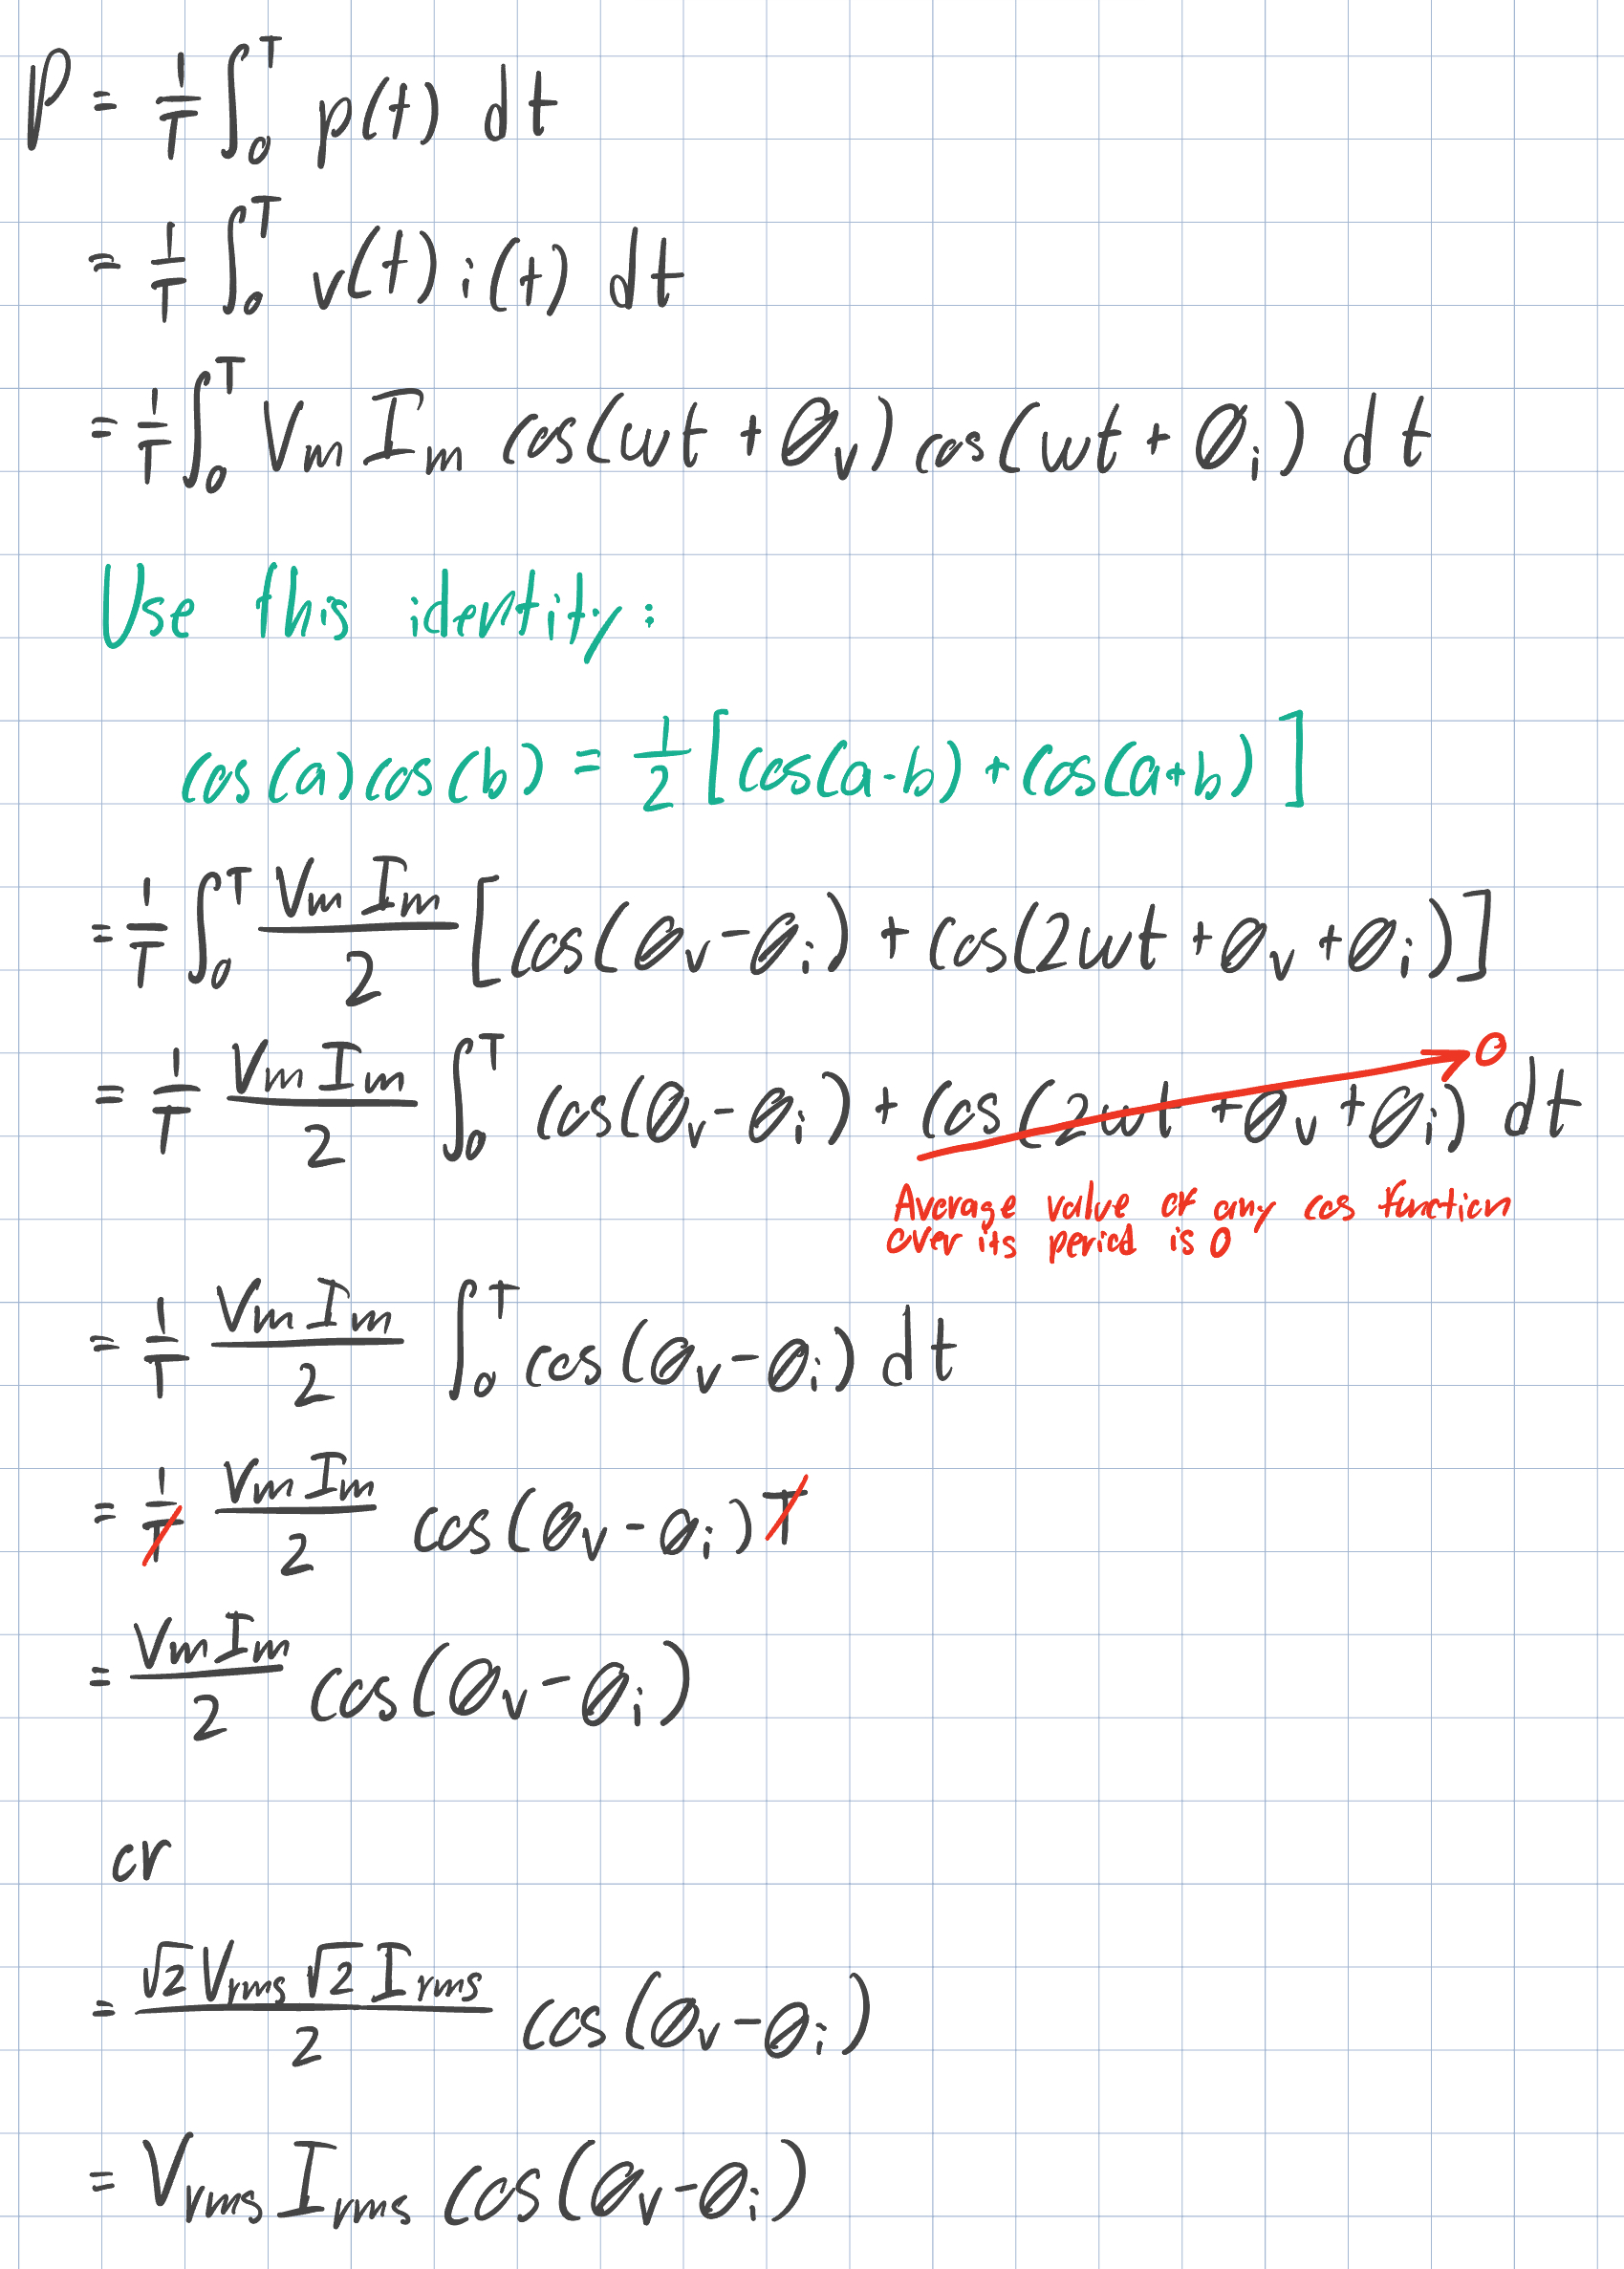 P = 1/T ∫₀ᵀ p(t) dt
= 1/T ∫₀ᵀ v(t) i(t) dt
= 1/T ∫₀ᵀ Vm Im cos(ωt + θv) cos(ωt + θi) dt
Use this identity:
cos(a)cos(b) = 1/2 [cos(a-b) + cos(a+b)]
= 1/T ∫₀ᵀ Vm Im / 2 [cos(θv - θi) + cos(2ωt + θv + θi)]
= 1/T Vm Im / 2 ∫₀ᵀ cos(θv - θi) + cos(2ωt + θv + θi) dt 0
Average value of any cos function
over its period is 0
= 1/T Vm Im / 2 ∫₀ᵀ cos(θv - θi) dt
= 1/T Vm Im / 2 cos(θv - θi) T
= Vm Im / 2 cos(θv - θi)
or
= √2 Vrms √2 Irms / 2 cos(θv - θi)
= Vrms Irms cos(θv - θi)